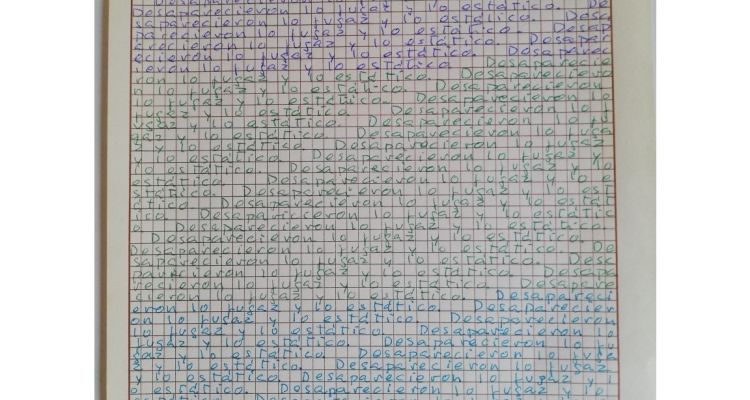 Desaparecieron lo fugaz y lo estático.
Desaparecieron lo fugaz y lo estático. De
saparecieron lo fugaz y lo estático. Desa
parecieron lo fugaz y lo estático. Desap
arecieron lo fugaz y lo estático. Desapar
ecieron lo fugaz y lo estático. Desaparec
ieron lo fugaz y lo estático. Desaparecie
ron lo fugaz y lo estático. Desapareciero
n lo fugaz y lo estático. Desaparecieron
lo fugaz y lo estático. Desaparecieron lo
fugaz y lo estático. Desaparecieron lo f
ugaz y lo estático. Desaparecieron lo fu
gaz y lo estático. Desaparecieron lo fuga
z y lo estático. Desaparecieron lo fugaz
y lo estático. Desaparecieron lo fugaz y
lo estático. Desaparecieron lo fugaz y lo
estático. Desaparecieron lo fugaz y lo e
stático. Desaparecieron lo fugaz y lo est
ático. Desaparecieron lo fugaz y lo estát
ico. Desaparecieron lo fugaz y lo estátic
o. Desaparecieron lo fugaz y lo estático.
Desaparecieron lo fugaz y lo estático.
Desaparecieron lo fugaz y lo estático. De
saparecieron lo fugaz y lo estático. Desa
parecieron lo fugaz y lo estático. Desapa
recieron lo fugaz y lo estático. Desapare
cieron lo fugaz y lo estático. Desapareci
eron lo fugaz y lo estático. Desaparecier
on lo fugaz y lo estático. Desaparecieron
lo fugaz y lo estático. Desaparecieron lo
fugaz y lo estático. Desaparecieron lo fu
gaz y lo estático. Desaparecieron lo fuga
z y lo estático. Desaparecieron lo fugaz
y lo estático. Desaparecieron lo fugaz y l
o estático. Desaparecieron lo fugaz y lo